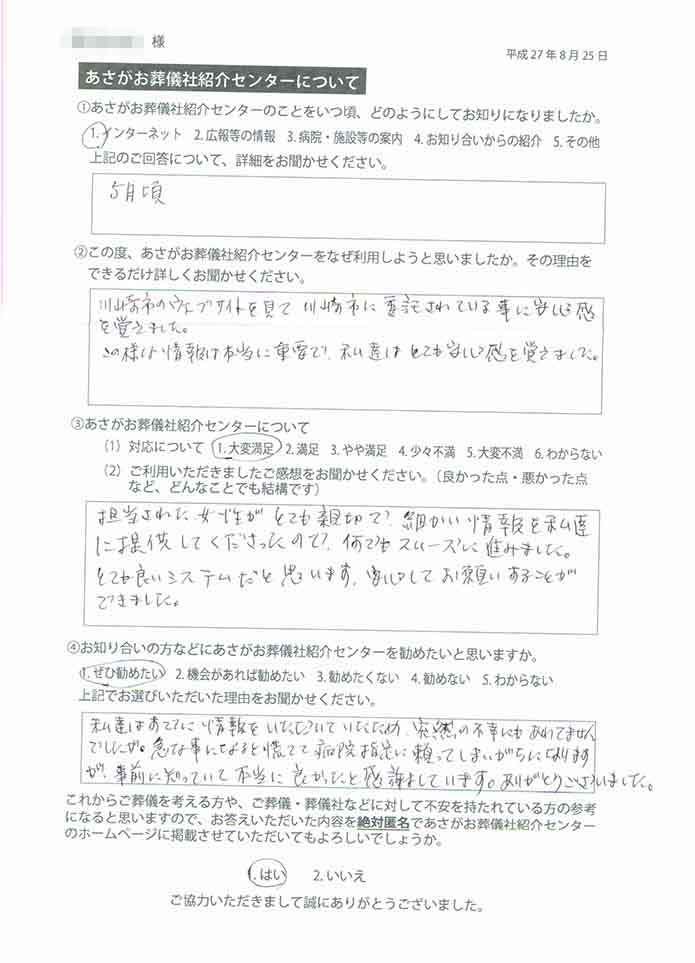 様
平成27年8月25日
あさがお葬儀社紹介センターについて
①あさがお葬儀社紹介センターのことをいつ頃、どのようにしてお知りになりましたか。
1. インターネット 2. 広報等の情報 3. 病院・施設等の案内 4. お知り合いからの紹介 5. その他
上記のご回答について、詳細をお聞かせください。
5月頃
②この度、あさがお葬儀社紹介センターをなぜ利用しようと思いましたか。その理由を
できるだけ詳しくお聞かせください。
川崎市のウェブサイトを見て 川崎市に委託されている事に安心感
を覚えました。
この様な情報は本当に重要で、私達はとても安心感を覚えました。
③あさがお葬儀社紹介センターについて
(1) 対応について 1. 大変満足 2. 満足 3. やや満足 4. 少々不満 5. 大変不満 6. わからない
(2) ご利用いただきましたご感想をお聞かせください。（良かった点・悪かった点
など、どんなことでも結構です）
担当された女性がとても親切で、細かい情報を私達
に提供してくださったので、何でもスムーズに進みました。
とても良いシステムだと思います、安心してお願いすることが
できました。
④お知り合いの方などにあさがお葬儀社紹介センターを勧めたいと思いますか。
1. ぜひ勧めたい 2. 機会があれば勧めたい 3. 勧めたくない 4. 勧めない 5. わからない
上記でお選びいただいた理由をお聞かせください。
私達は情報をいただいていたため、突然の不幸にもあわてません
でしたが。急な事になると慌てて病院指定に頼ってしまいがちになります
が、事前に知っていて本当に良かったと感謝しています。ありがとうございました。
これからご葬儀を考える方や、ご葬儀・葬儀社などに対して不安を持たれている方の参考
になると思いますので、お答えいただいた内容を絶対匿名であさがお葬儀社紹介センター
のホームページに掲載させていただいてもよろしいでしょうか。
1. はい 2. いいえ
ご協力いただきまして誠にありがとうございました。